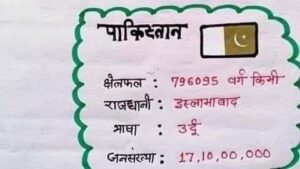 पाकिस्तान
क्षेत्रफल : 796095 वर्ग किमी
राजधानी : इस्लामाबाद
भाषा : उर्दू
जनसंख्या : 17,10,00,000